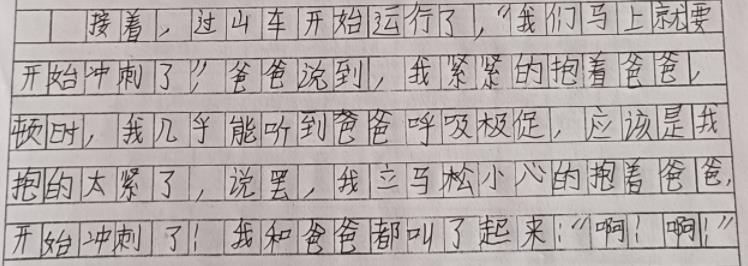 接着，过山车开始运行了，“我们马上就要
开始冲刺了”爸爸说到，我紧紧的抱着爸爸，
顿时，我几乎能听到爸爸呼吸极促，应该是我
抱的太紧了，说罢，我立马松小心的抱着爸爸，
开始冲刺了！我和爸爸都叫了起来：“啊！啊！”